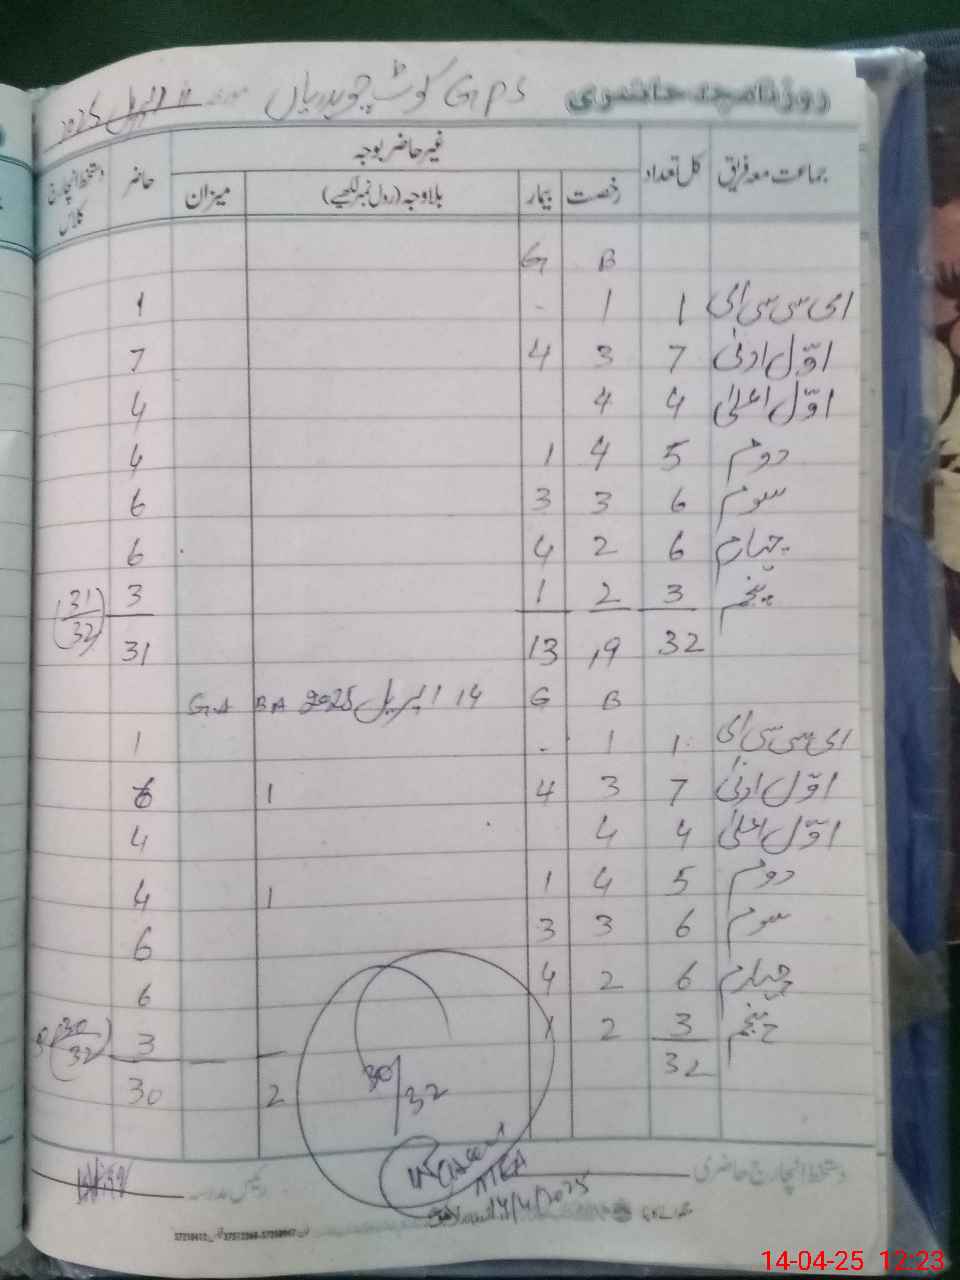 روزنامچہ حاضری GPS کوٹ چوہدریاں مورخہ 11 اپریل 2025
جماعت معہ فریق کل تعداد غیر حاضر بوجہ حاضر دستخط انچارج کلاس
رخصت بیمار بلاوجہ (رول نمبر لکھیے) میزان
B G
ای سی سی ای 1 1 - 1
اوّل ادنیٰ 7 3 4 7
اوّل اعلیٰ 4 4 4
دوم 5 4 1 4
سوم 6 3 3 6
چہارم 6 2 4 6
پنجم 3 2 1 3 (31/32)
32 19 13 31
B G 14 اپریل 2025 BA GA
ای سی سی ای 1 1 - 1
اوّل ادنیٰ 7 3 4 1 6
اوّل اعلیٰ 4 4 4
دوم 5 4 1 1 4
سوم 6 3 3 6
چہارم 6 2 4 6
پنجم 3 2 1 3 (30/32)
32 2 30
30/32
دستخط انچارج حاضری رئیس مدرسہ
MEA
14/4/2025
14-04-25 12:23